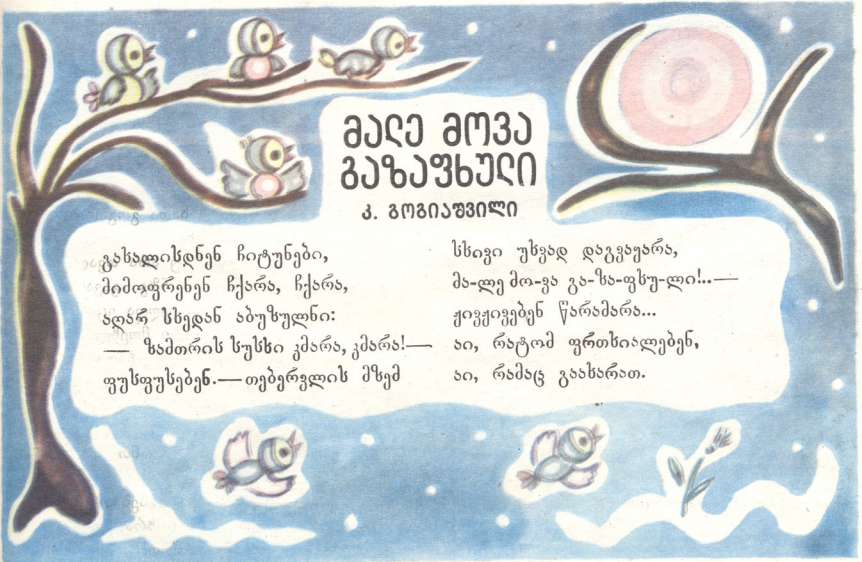 მალე მოვა
გაზაფხული
კ. გოგიაშვილი
გახალისდნენ ჩიტუნები,
მიმოფრენენ ჩქარა, ჩქარა,
აღარ სხედან აბუზულნი:
— ზამთრის სუსხი კმარა, კმარა!—
ფუსფუსებენ.— თებერვლის მზემ
სხივი უხვად დაგვაყარა,
მა-ლე მო-ვა გა-ზა-ფხუ-ლი!..—
ჟივჟივებენ წარამარა...
აი, რატომ ფრთხიალებენ,
აი, რამაც გაახარათ.